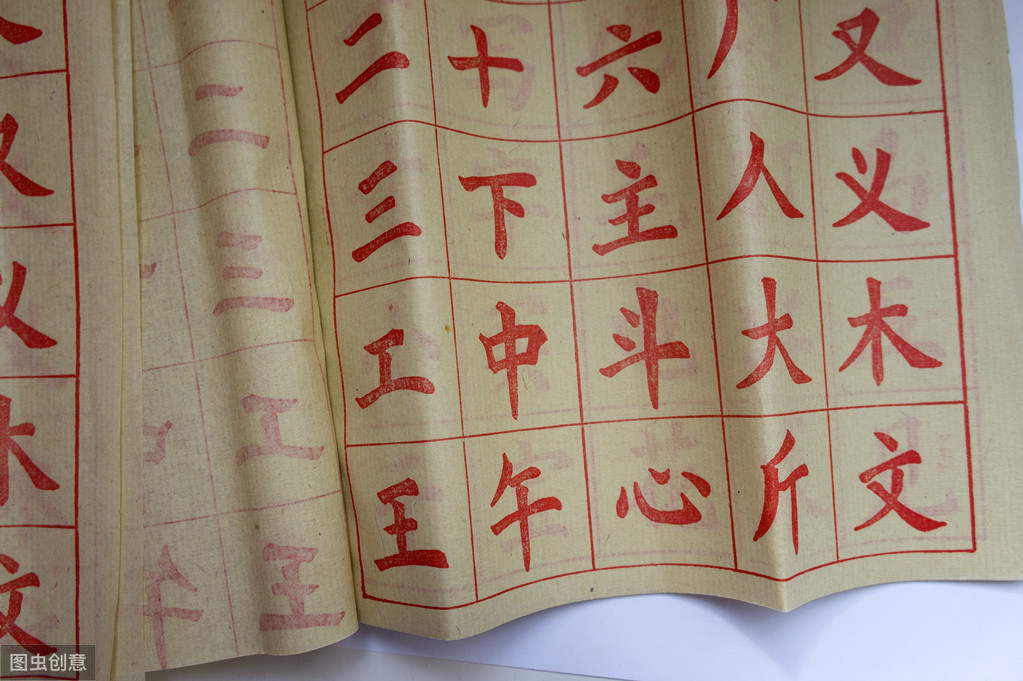 二 十 六 又
三 下 主 人 义
工 中 斗 大 木
王 午 心 斤 文
二
三
工
午 王
义
木
文
图虫创意